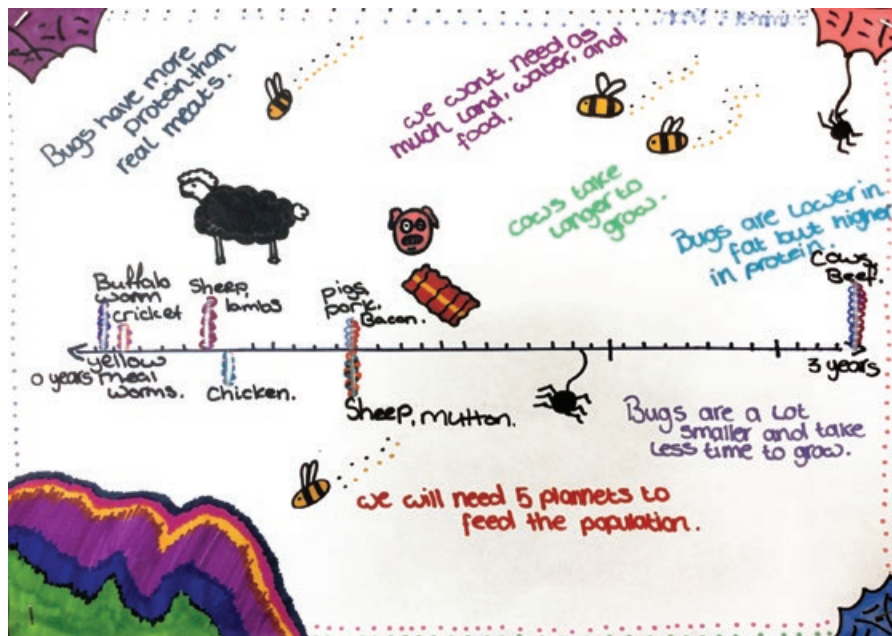 Bugs have more
protein than
real meats.
we wont need as
much land, water, and
food.
cows take
longer to
grow.
Bugs are lower in
fat but higher
in protein.
Buffalo
worm
cricket
Sheep,
lambs
pigs,
pork.
Bacon.
Cows,
Beef.
0 years
yellow
meal
worms.
chicken.
Sheep, Mutton.
3 years
Bugs are a lot
smaller and take
less time to grow.
we will need 5 plannets to
feed the population.